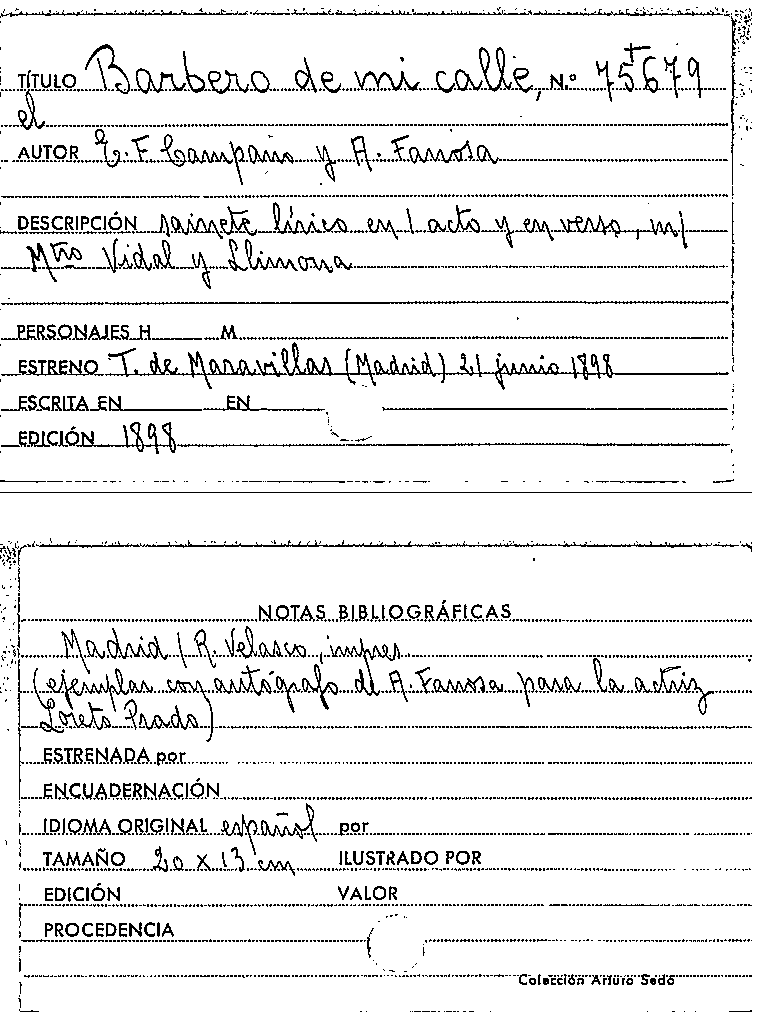 TÍTULO Barbero de mi calle, N.º 75679
el
AUTOR E. F Campano y A. Fanosa
DESCRIPCIÓN sainete lírico en 1 acto y en verso, m/
Mtro Vidal y Llimona
PERSONAJES H M
ESTRENO T. de Maravillas (Madrid) 21 junio 1898
ESCRITA EN EN
EDICIÓN 1898
NOTAS BIBLIOGRÁFICAS
Madrid / R. Velasco, impres.
(ejemplar con autógrafo de A. Fanosa para la actriz
Loreto Prado)
ESTRENADA por
ENCUADERNACIÓN
IDIOMA ORIGINAL español por
TAMAÑO 20 x 13 cm ILUSTRADO POR
EDICIÓN VALOR
PROCEDENCIA
Colección Arturo Sedó